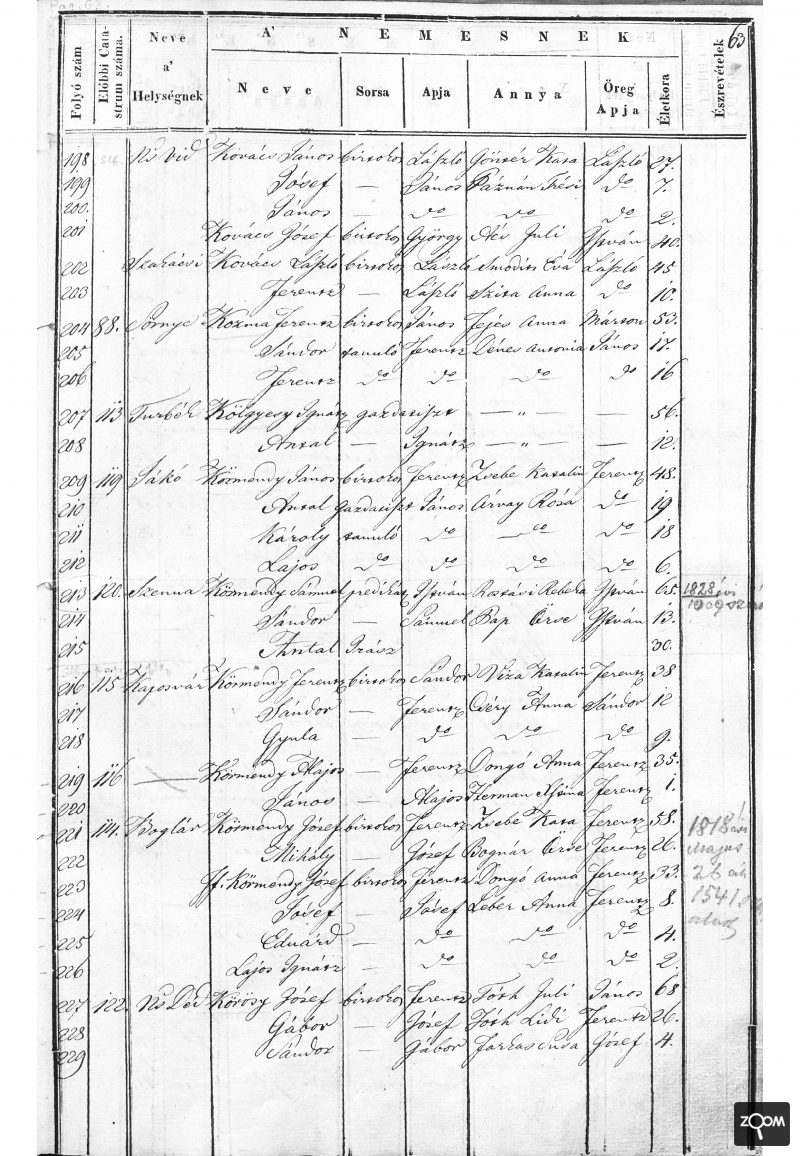 63
A' NEMESNEK
Folyó szám Előbbi Cata-strum száma. Neve a' Helységnek Neve Sorsa Apja Annya Öreg Apja Életkora Észrevételek
198 Ns Vid Kovács János birtokos László Gönter Kata László 27.
199 Jósef — János Páznán Trési do 7.
200. János — do do do 2.
201 Kovács Jósef birtokos György Ács Juli István 40.
202 Szakácsi Kovács László birtokos László Smodits Éva László 45
203 Ferentz — László Szita Anna do 10.
204 88. Somye Kozma Ferentz birtokos János Fejes Anna Márton 53.
205 Sándor tanuló Ferentz Dénes Antonia János 17.
206 Ferentz do do do do 16
207 113 Turbék Kölgyesy Ignátz gazdatiszt — „ — — 56.
208 Antal — Ignátz — „ — — 12.
209 119 Sákó Körmendy János birtokos Ferentz Zsebe Katalin Ferentz 48.
210 Antal gazdatiszt János Arvay Rósa do 19
211 Károly tanuló do do do 18
212 Lajos do do do do 6.
213 120. Szenna Körmendy Sámuel prédikát István Rostási Rebeka István 65. 1828 évi
1009 szám
214 Sándor — Sámuel Pap Örse István 13.
215 Antal Izász 30.
216 115 Kaposvár Körmendy Ferentz birtokos Sándor Viza Katalin Ferentz 38
217 Sándor — Ferentz Cséry Anna Sándor 12
218 Gyula — do do do 9.
219 116 — Körmendy Alajos — Ferentz Dongó Anna Ferentz 35.
220 János — Alajos Herman Ferentz 1.
221 114. Boglár Körmendy Jósef birtokos Ferentz Zsebe Kata Ferentz 58. 1818 évi
222 Mihály — Jósef Bognár Örse Ferentz 26. Majus
223 ff. Körmendy Jósef birtokos Ferentz Dongó Anna Ferentz 33. 26 án
224 Jósef — Jósef Léber Anna Ferentz 8. 1541
225 Eduárd — do do do 4.
226 Lajos Ignátz — do do do 2.
227 122. Ns Déd Körösy Jósef birtokos Ferentz Tóth Juli János 68
228 Gábor — Jósef Tóth Lidi Ferentz 26.
229 Sándor — Gábor Farkas Susa Jósef 4.
ZOOM